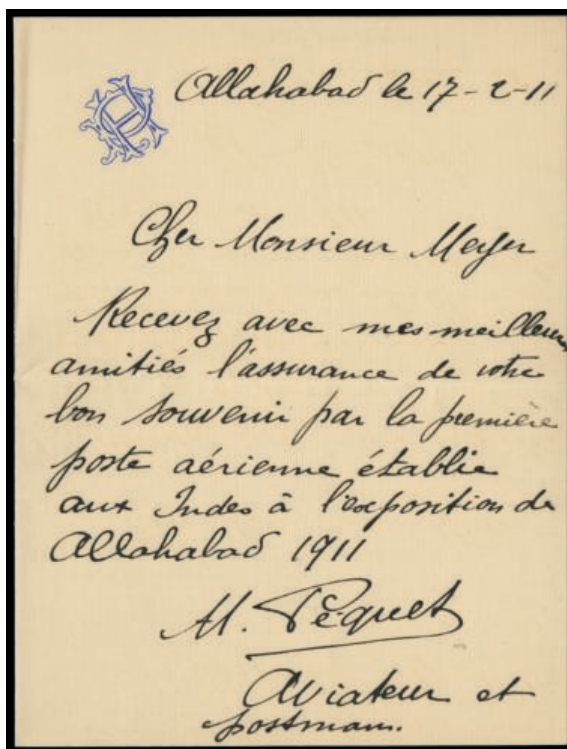 Allahabad le 17-2-11
Cher Monsieur Meyer
Recevez avec mes meilleures
amitiés l'assurance de votre
bon souvenir par la première
poste aérienne établie
aux Indes à l'exposition de
Allahabad 1911
M. Péquet
Aviateur et
postman.